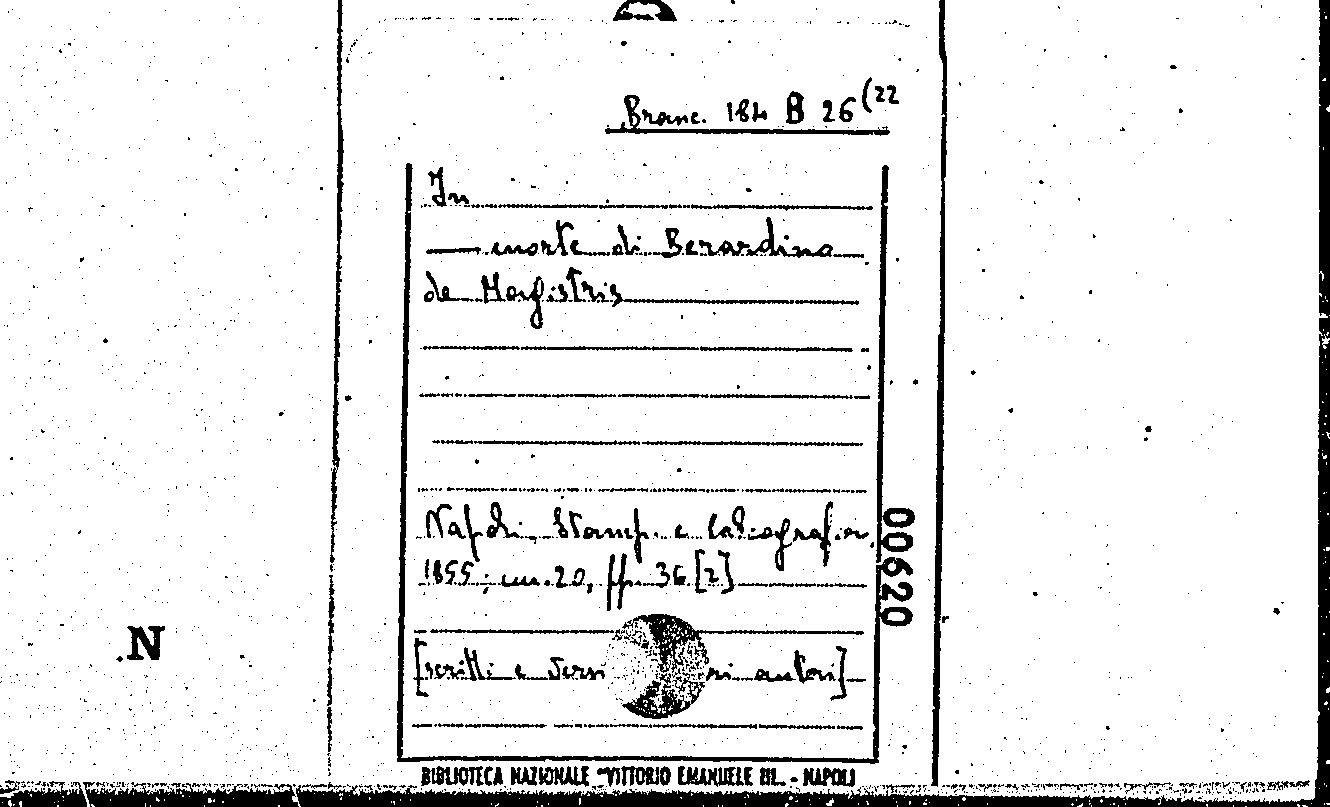 Branc. 184 B 26(22
In
morte di Berardino
de Magistris
Napoli, Stamp. e
1855; cm. 20, pp. 36 [2]
[scritti e versi autori]
00620
N
BIBLIOTECA NAZIONALE "VITTORIO EMANUELE III„ - NAPOLI